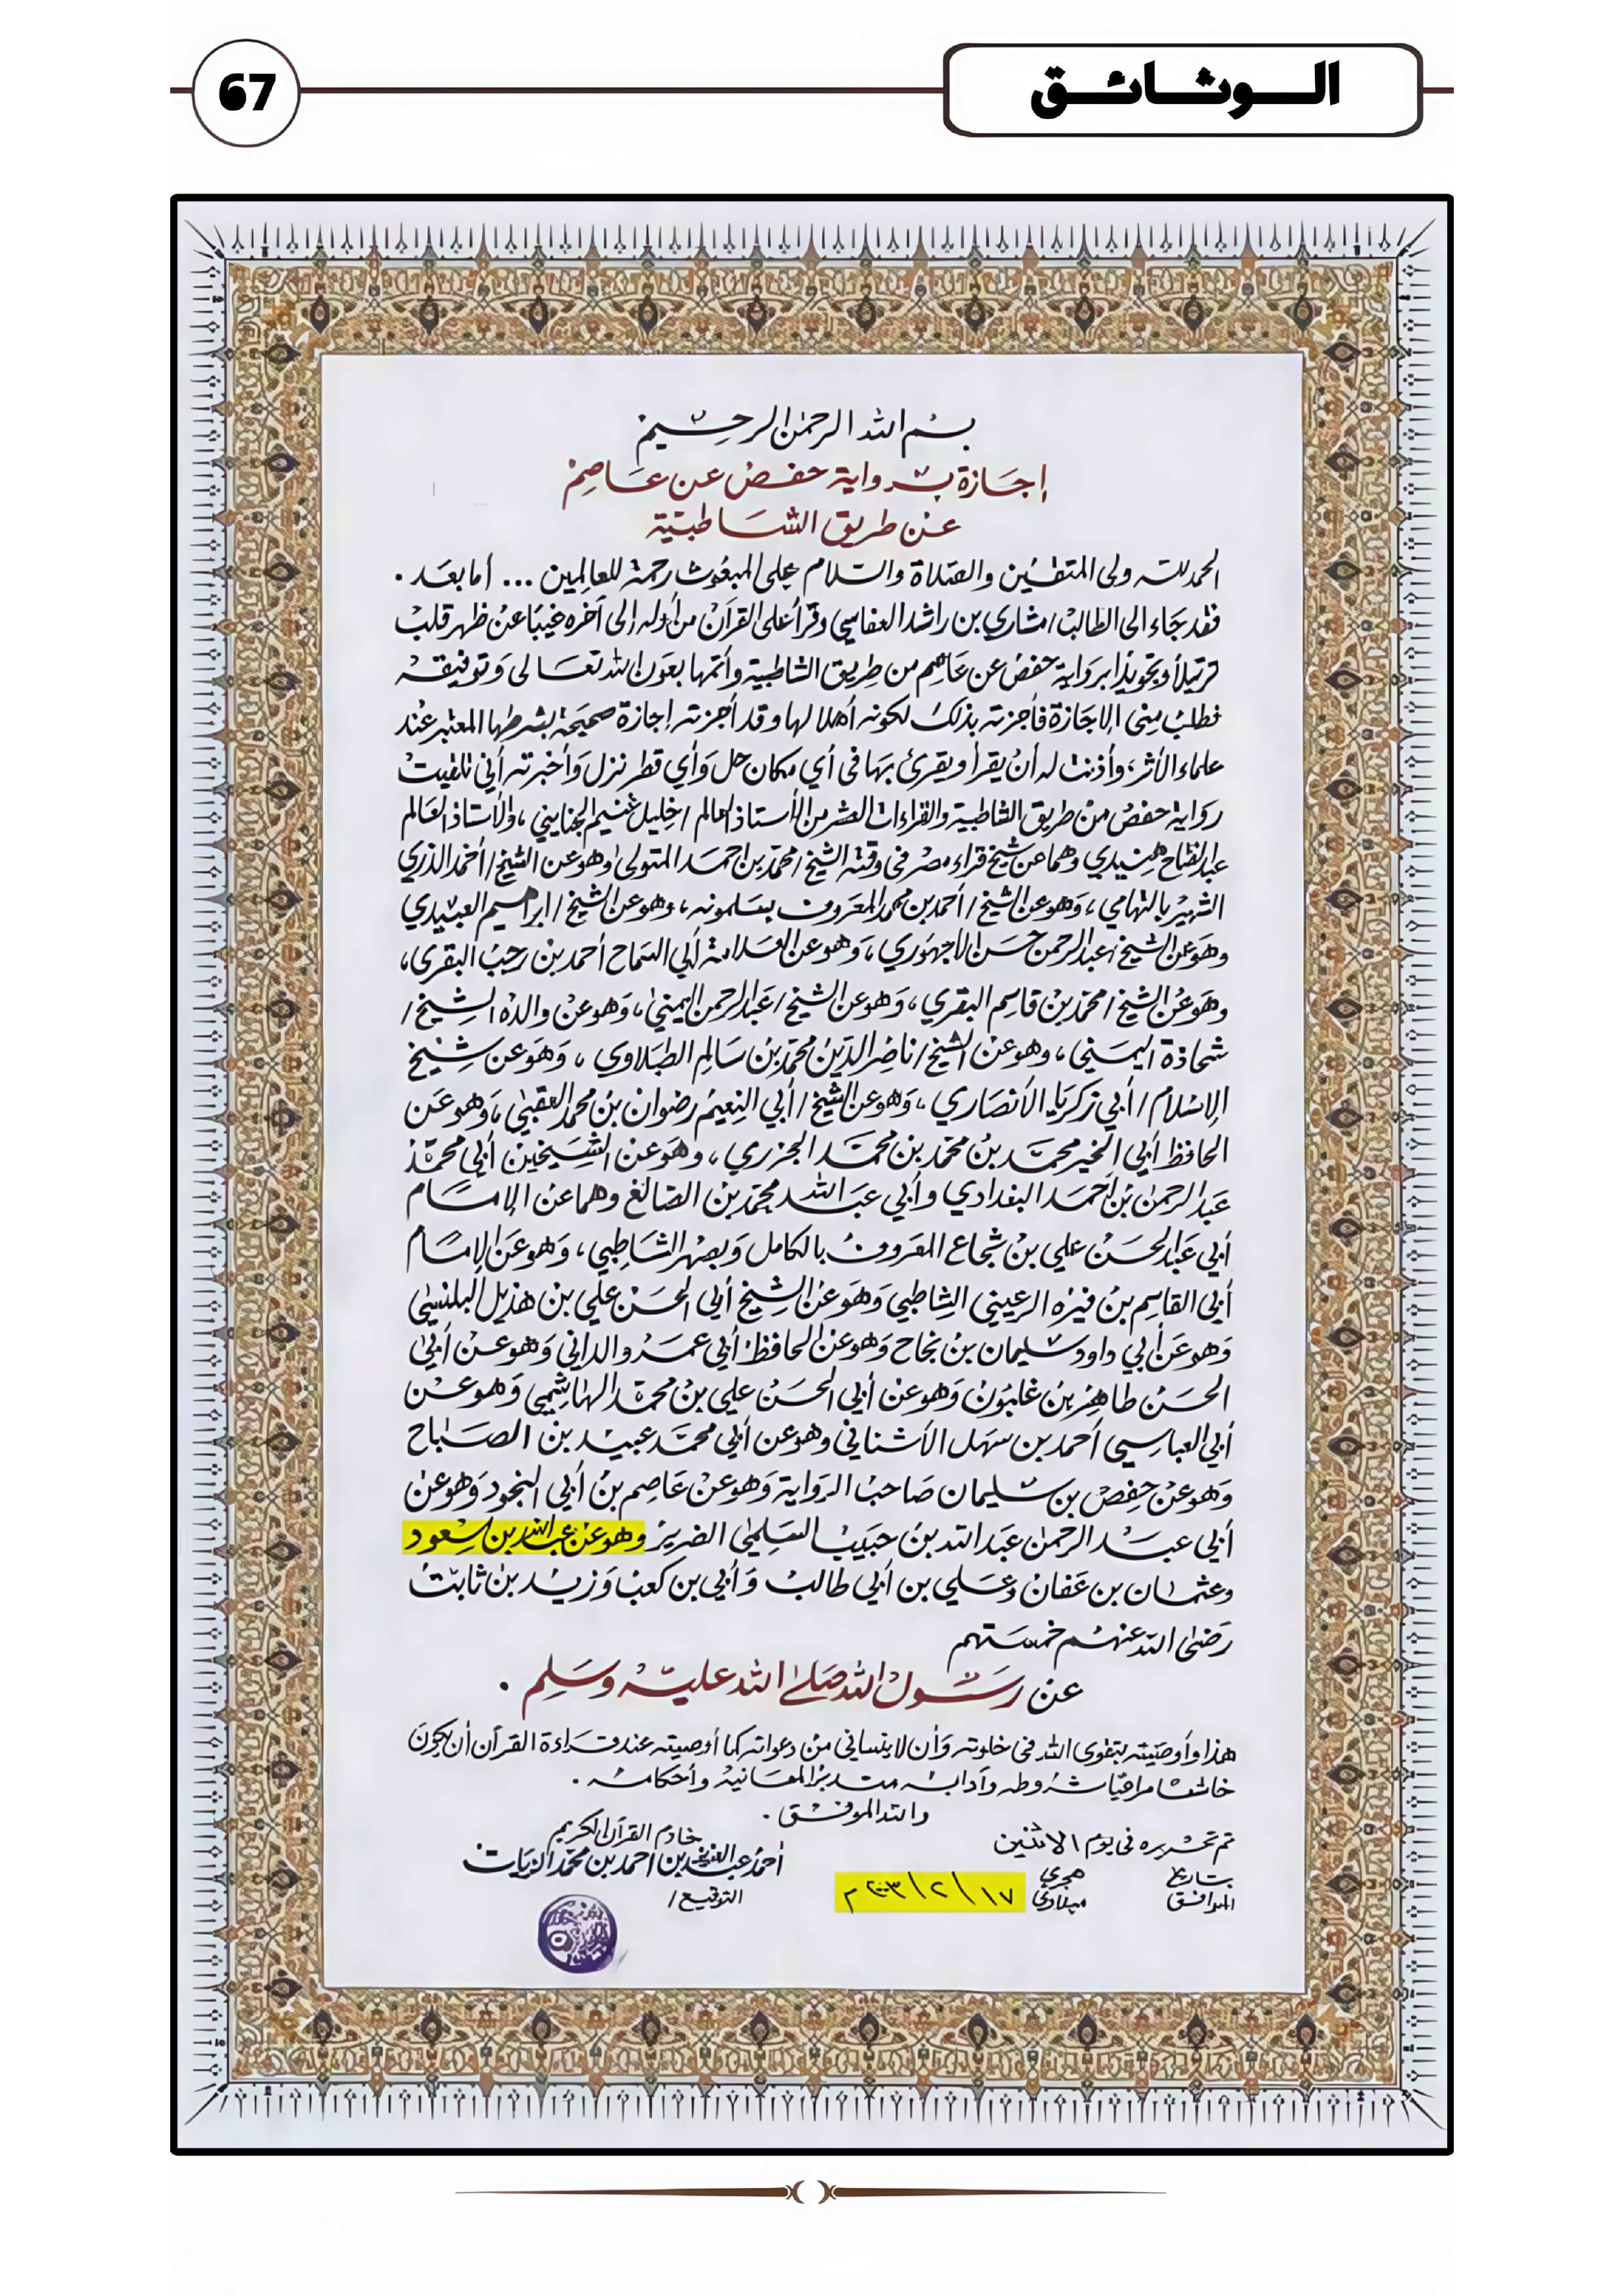 الوثائق
67
بسم الله الرحمن الرحيم
إجازة برواية حفص عن عاصم
عن طريق الشاطبية
الحمد لله ولى المتقين والصلاة والسلام على المبعوث رحمة للعالمين ... أما بعد .
فقد جاء الى الطالب / مشاري بن راشد العفاسي وقرأ على القرآن من أوله إلى آخره غيبًا عن ظهر قلب
ترتيلاً وتجويدًا برواية حفص عن عاصم من طريق الشاطبية وأتمها بعون الله تعالى وتوفيقه
فطلب منى الإجازة فأجزته بذلك لكونه أهلا لها وقد أجزته إجازة صحيحة بشرطها المعتبر عند
علماء الأثر، وأذنت له أن يقرأ ويقرئ بها فى أي مكان حل وأي قطر نزل وأخبرته أني تلقيت
رواية حفص من طريق الشاطبية والقراءات العشر من الأستاذ العالم / خليل غنيم الجنايني ، والأستاذ العالم
عبد الفتاح هنيدي وهما عن شيخ قراء مصر فى وقته الشيخ / محمد بن احمد المتولى وهو عن الشيخ / أحمد الدري
الشهير بالتهامي ، وهو عن الشيخ / أحمد بن محمد المعروف بسلمونه ، وهو عن الشيخ / ابراهيم العبيدي
وهو عن الشيخ / عبد الرحمن حسن الأجهوري ، وهو عن العلامة أبي السماح أحمد بن رجب البقرى ،
وهو عن الشيخ / محمد بن قاسم البقري ، وهو عن الشيخ / عبد الرحمن اليمني ، وهو عن والده الشيخ /
شحاذة اليمني ، وهو عن الشيخ / ناصر الدين محمد بن سالم الطبلاوي ، وهو عن شيخ
الإسلام / أبي زكريا الأنصاري ، وهو عن الشيخ / أبي النعيم رضوان بن محمد العقبي ، وهو عن
الحافظ أبي الخير محمد بن محمد بن محمد الجزري ، وهو عن الشيخين أبي محمد
عبد الرحمن بن أحمد البغدادي وأبي عبد الله محمد بن الصائغ وهما عن الإمام
أبي عبد الحسن علي بن شجاع المعروف بالكامل وبصهر الشاطبي ، وهو عن الإمام
أبي القاسم بن فيره الرعيني الشاطبي وهو عن الشيخ أبي الحسن علي بن هذيل البلنسي
وهو عن أبي داود سليمان بن نجاح وهو عن الحافظ أبي عمرو الداني وهو عن أبي
الحسن طاهر بن غلبون وهو عن أبي الحسن علي بن محمد الهاشمي وهو عن
أبي العباسي أحمد بن سهل الأشناني وهو عن أبي محمد عبيد بن الصباح
وهو عن حفص بن سليمان صاحب الرواية وهو عن عاصم بن أبي النجود وهو عن
أبي عبد الرحمن عبد الله بن حبيب السلمي الضرير وهو عن عبد الله بن سعود
وعثمان بن عفان وعلي بن أبي طالب وأبي بن كعب وزيد بن ثابت
رضى الله عنهم خمستهم
عن رسول الله صلى الله عليه وسلم .
هذا وأوصيته بتقوى الله فى خلوته وأن لا ينساني من دعواته كما أوصيته عند قراءة القرآن أن يكون
خاشعا مراعيا شروطه وآدابه متدبرا لمعانيه وأحكامه .
والله الموفق .
تم تحريره فى يوم الاثنين
بتاريخ هجري
الموافق ١٧ / ٢ / ٢٠٠٣ م ميلادي
خادم القرآن الكريم
أحمد عبد العزيز بن احمد بن محمد الزيات
التوقيع /